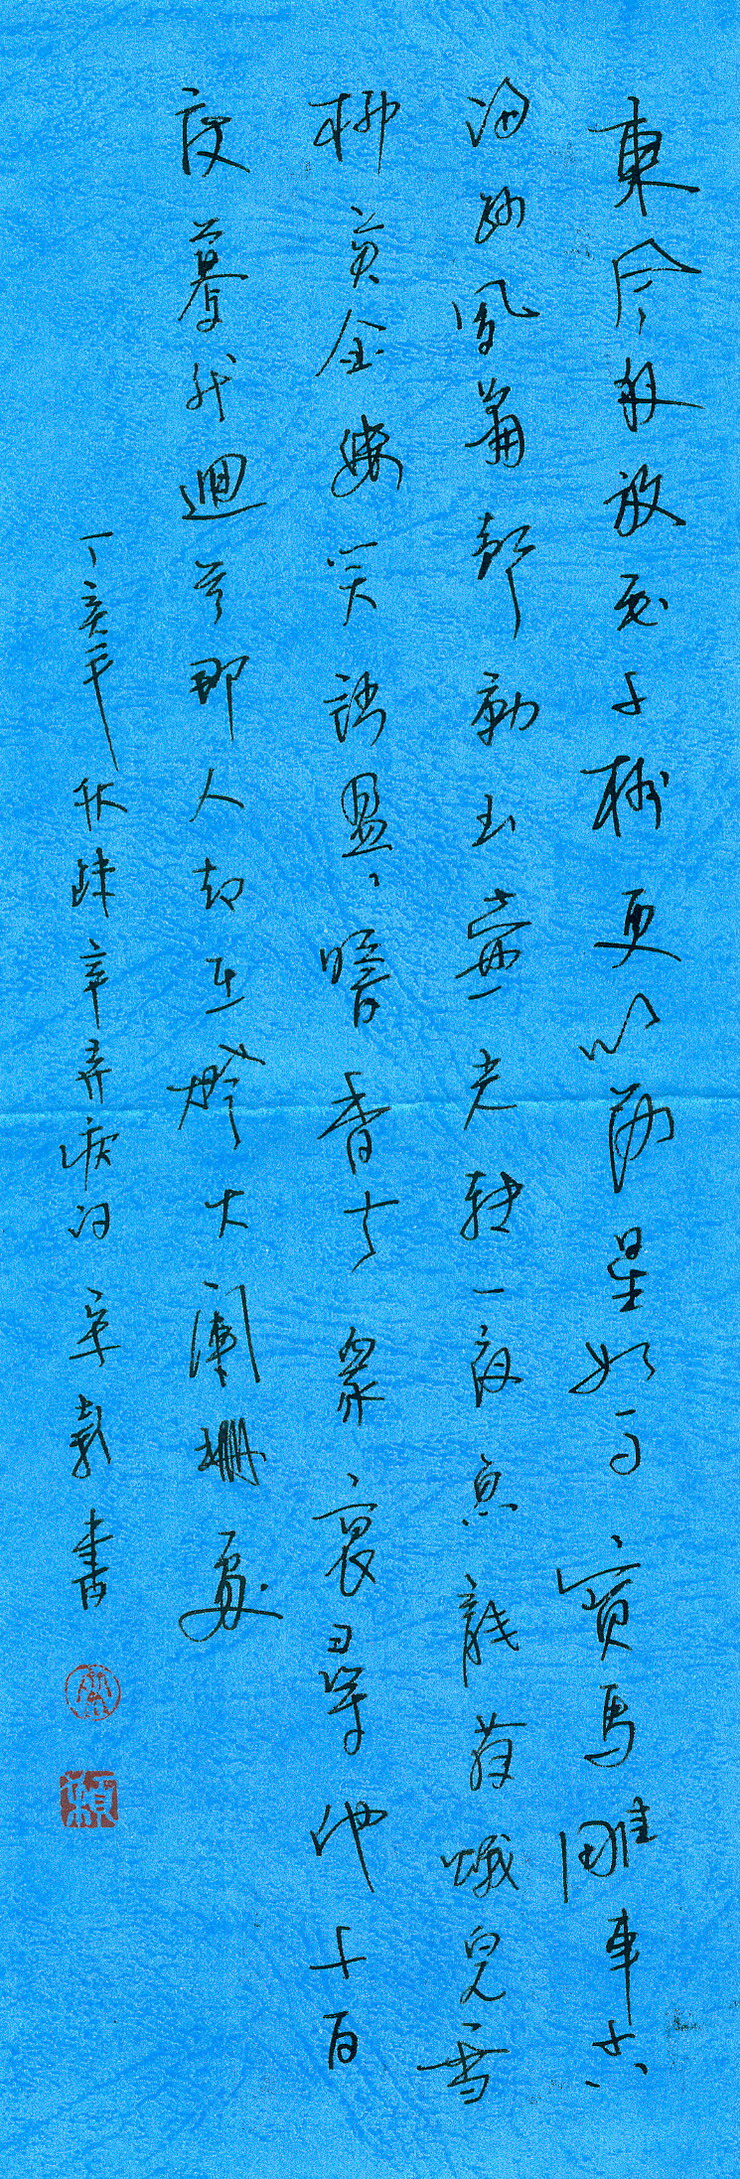 東風夜放花千樹更吹落星如雨寶馬雕車香
滿路鳳簫聲動玉壺光轉一夜魚龍舞蛾兒雪
柳黃金縷笑語盈、暗香去眾裏尋他千百
度驀然迴首那人却在燈火闌珊處
丁亥年秋錄辛弃疾詞書